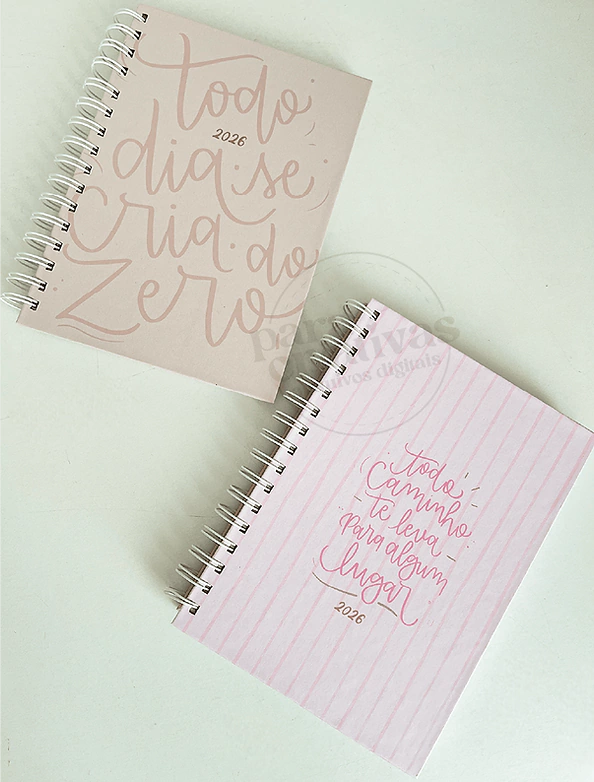 todo
2026
dia se
cria do
zero
para
criativas
arquivos digitais
todo
Caminho
te leva
para algum
lugar
2026